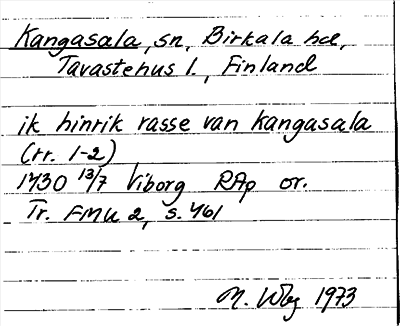 Kangasala, sn, Birkala hd,
Tavastehus l., Finland
ik hinrik rasse van kangasala
(rr. 1-2)
1430 13/7 Viborg RAp or.
Tr. FMU 2, s. 461
1973